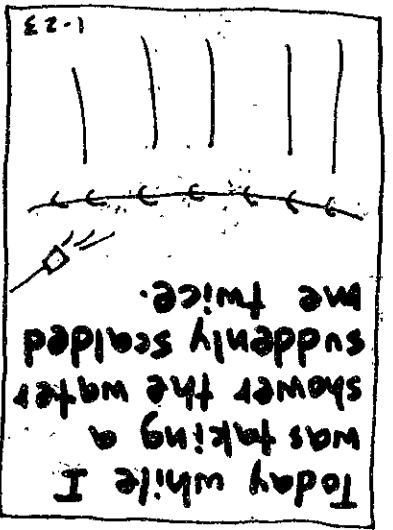 Today while I
was taking a
shower the water
suddenly scalded
me twice.
1-23